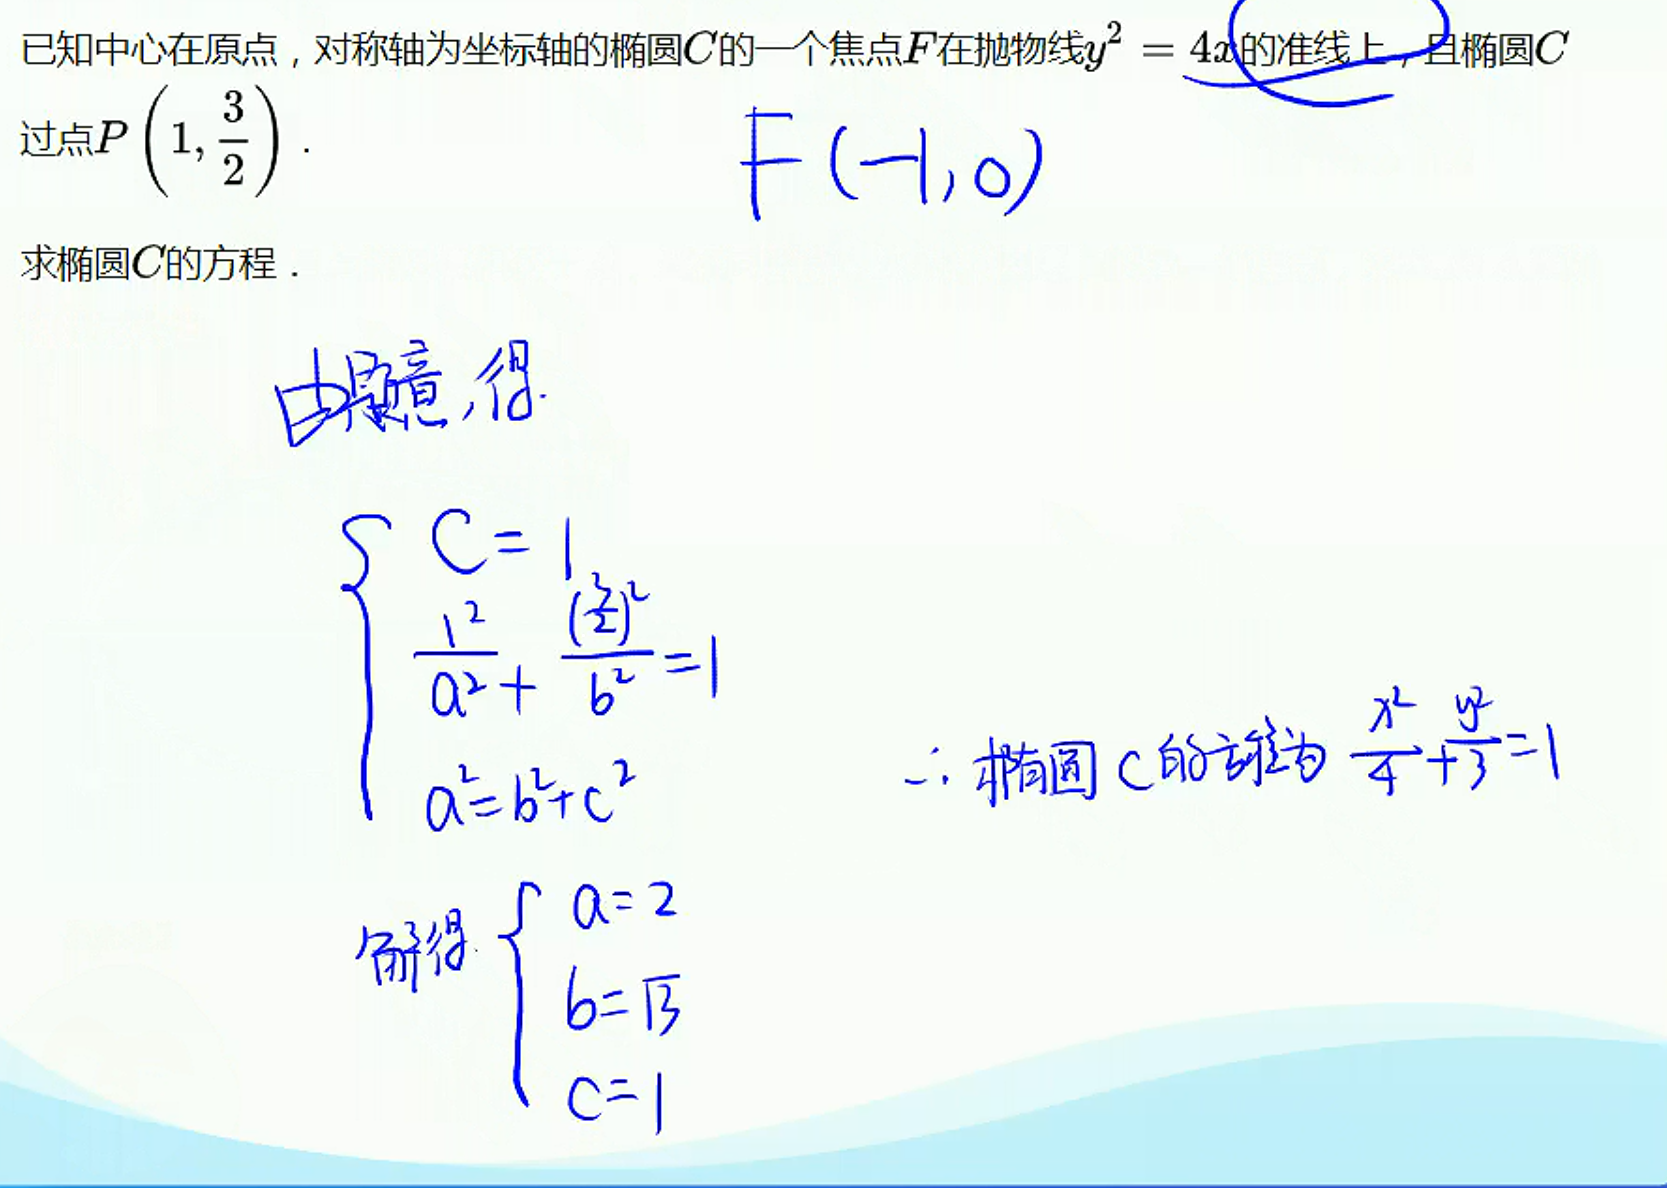 已知中心在原点，对称轴为坐标轴的椭圆C的一个焦点F在抛物线y² = 4x的准线上，且椭圆C
过点P(1, 3/2)．
F(-1,0)
求椭圆C的方程．
由题意,得.
C = 1
1²/a² + (3/2)²/b² = 1
a² = b² + c²
∴ 椭圆 C 的方程为 x²/4 + y²/3 = 1
解得.
a = 2
b = √3
c = 1